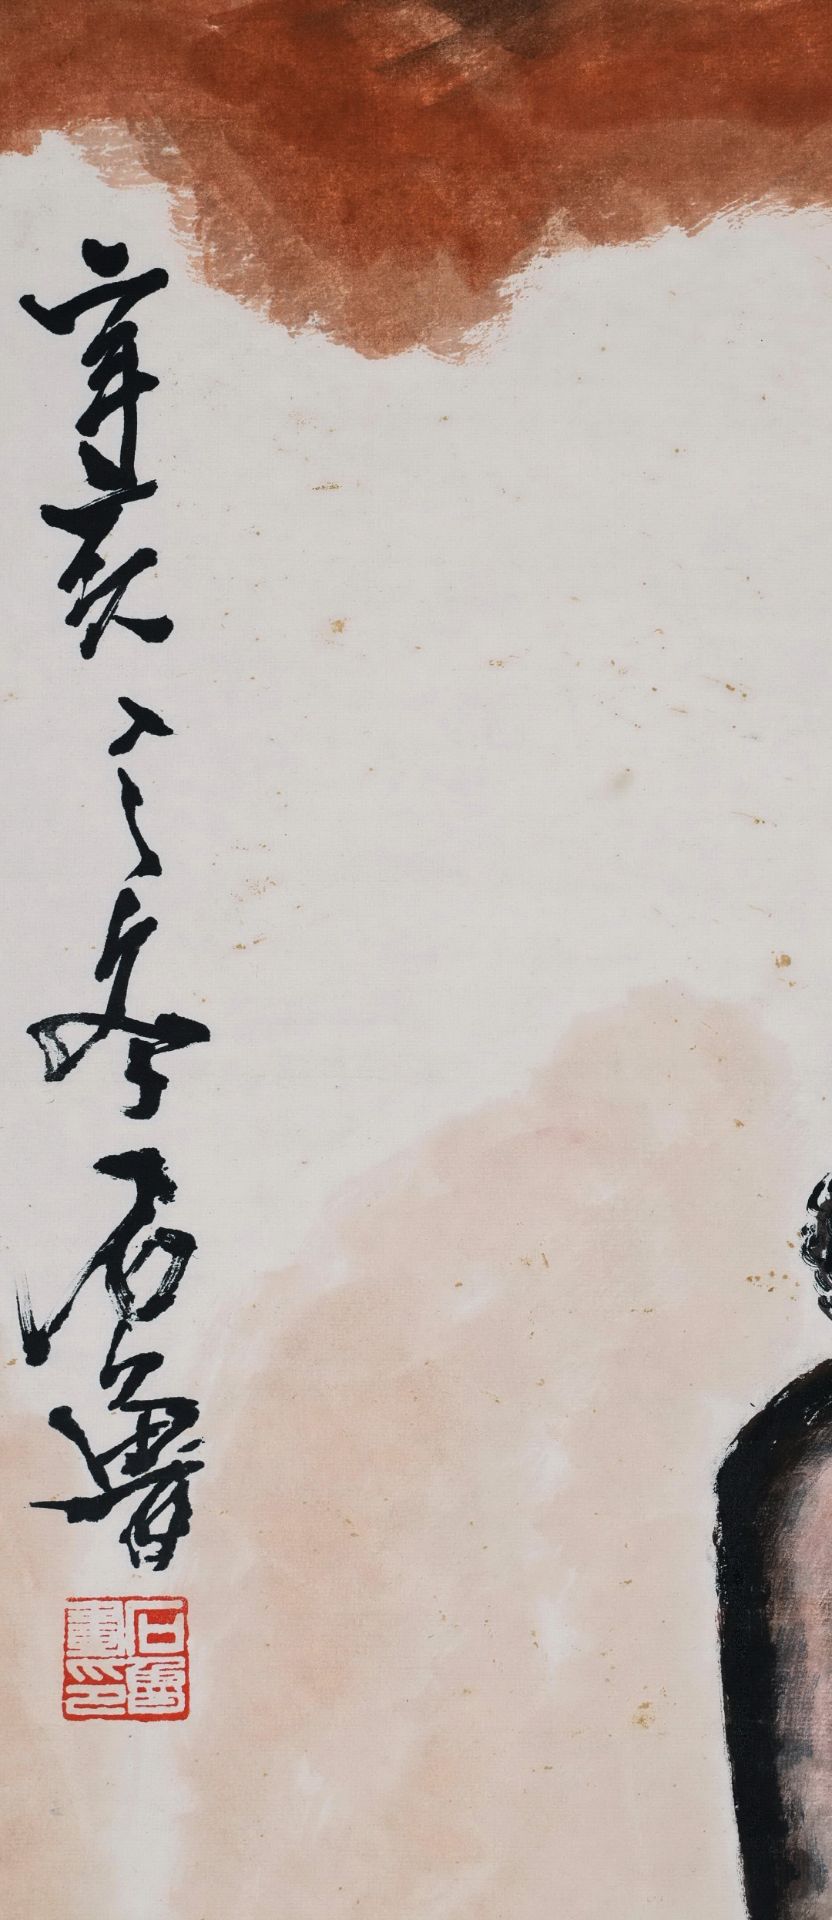 辛亥之冬石魯
石魯畫印